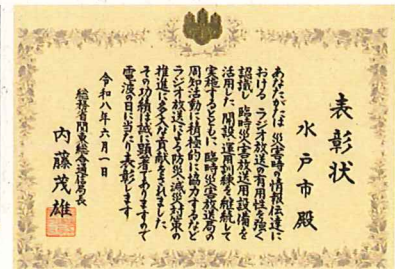 表彰状
水戸市殿
あなたがたは 災害時の情報伝達に
おける ラジオ放送の有用性を強く
認識し 臨時災害放送用設備を
活用した 開設・運用訓練を継続して
実施するとともに 臨時災害放送局の
周知活動に積極的に協力するなど
ラジオ放送による防災・減災対策の
推進に多大な貢献をされました
その功績は誠に顕著でありますので
電波の日に当たり表彰します
令和八年六月一日
総務省関東総合通信局長
内藤茂雄